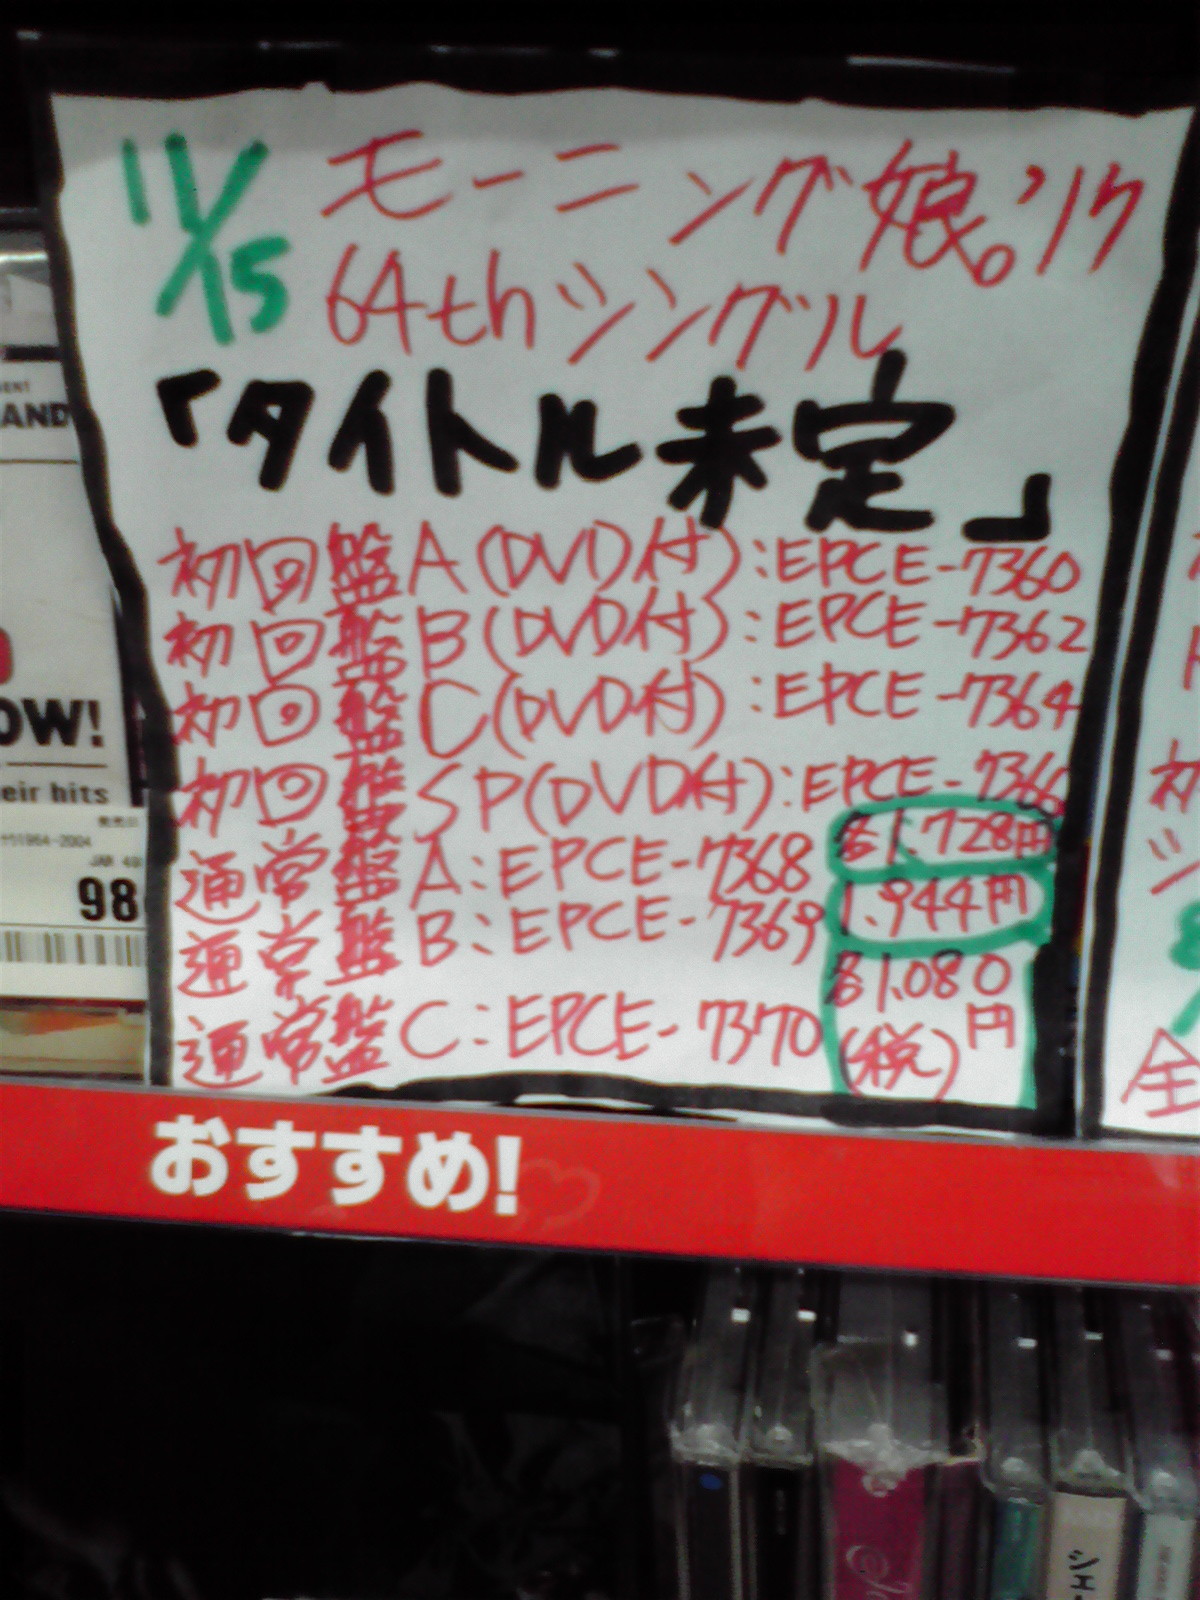 11/15 モーニング娘。'17
64thシングル
「タイトル未定」
初回盤A(DVD付):EPCE-7360
初回盤B(DVD付):EPCE-7362
初回盤C(DVD付):EPCE-7364
初回盤SP(DVD付):EPCE-7366
各1.728円
通常盤A:EPCE-7368
1.944円
通常盤B:EPCE-7369
各1.080円
通常盤C:EPCE-7370
(税)
おすすめ!
AND
OW!
eir hits
1964-2004
JAN 49
98
初
シ
全
シェ